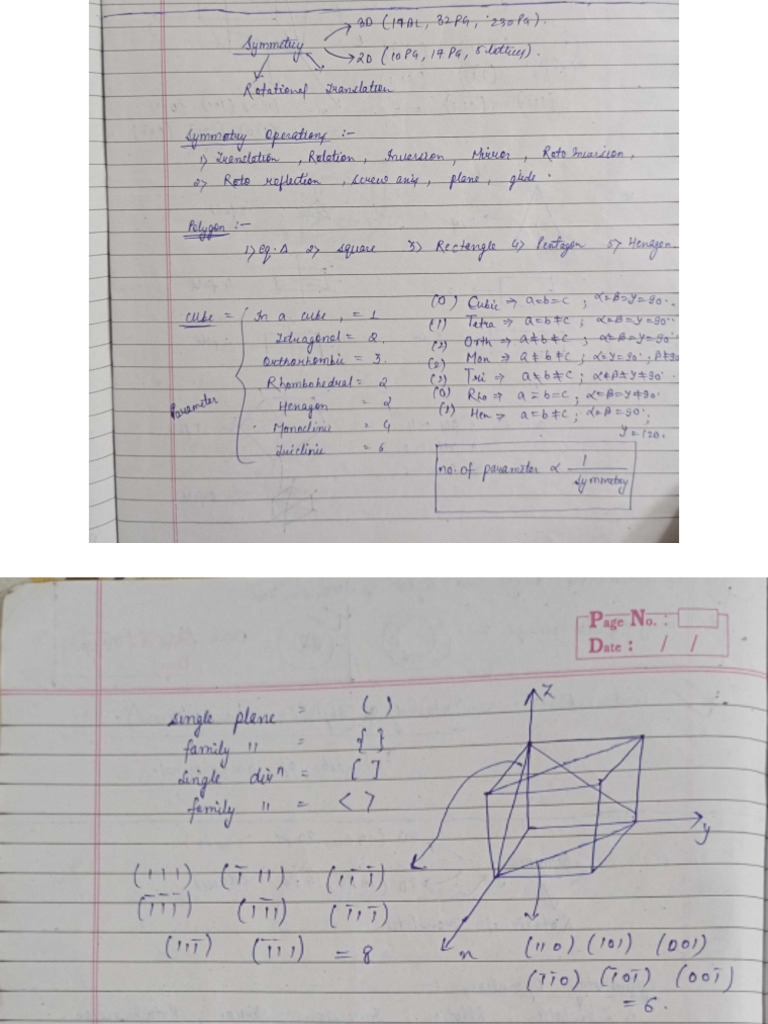 3D (14BL, 32PG, 230PG).
Symmetry
2D (10PG, 17PG, 5 lattices).
Rotational Translation
Symmetry Operations :-
1) Translation, Rotation, Inversion, Mirror, Roto Inversion,
2) Roto reflection, screw axis, plane, glide.
Polygon :-
1) Eq. Δ 2) square 3) Rectangle 4) Pentagon 5) Hexagon.
cube = In a cube, = 1
Tetragonal = 2.
Orthorhombic = 3.
Rhombohedral = 2
Hexagon = 2
Monoclinic = 4
Triclinic = 6
Parameter
(0) Cubic → a=b=c ; α=β=γ=90°.
(1) Tetra → a=b≠c ; α=β=γ=90°
(2) Orth → a≠b≠c ; α=β=γ=90°
(2) Mon → a≠b≠c ; α=γ=90°, β≠90
(3) Tri → a≠b≠c ; α≠β≠γ≠90°
(0) Rho → a=b=c ; α=β=γ≠90°
Hex → a=b≠c ; α=β=90°,
γ=120.
no. of parameter ∝ 1
symmetry
Page No. :
Date : / /
single plane = ( )
family " = { }
single dirⁿ = [ ]
family " = < >
z
y
x
(111) (1̄11) (11̄1̄)
(1̄1̄1̄) (1̄1̄1) (1̄11̄)
(111̄) (1̄11) = 8
(110) (101) (001)
(1̄1̄0) (1̄01̄) (001̄)
= 6.